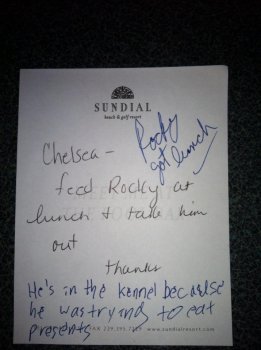 SUNDIAL
beach & golf resort
Rocky
got lunch
Chelsea -
feed Rocky at
lunch & take him
out
thanks
He's in the kennel because
he was trying to eat
presents
FAX 239.395.7269 www.sundialresort.com